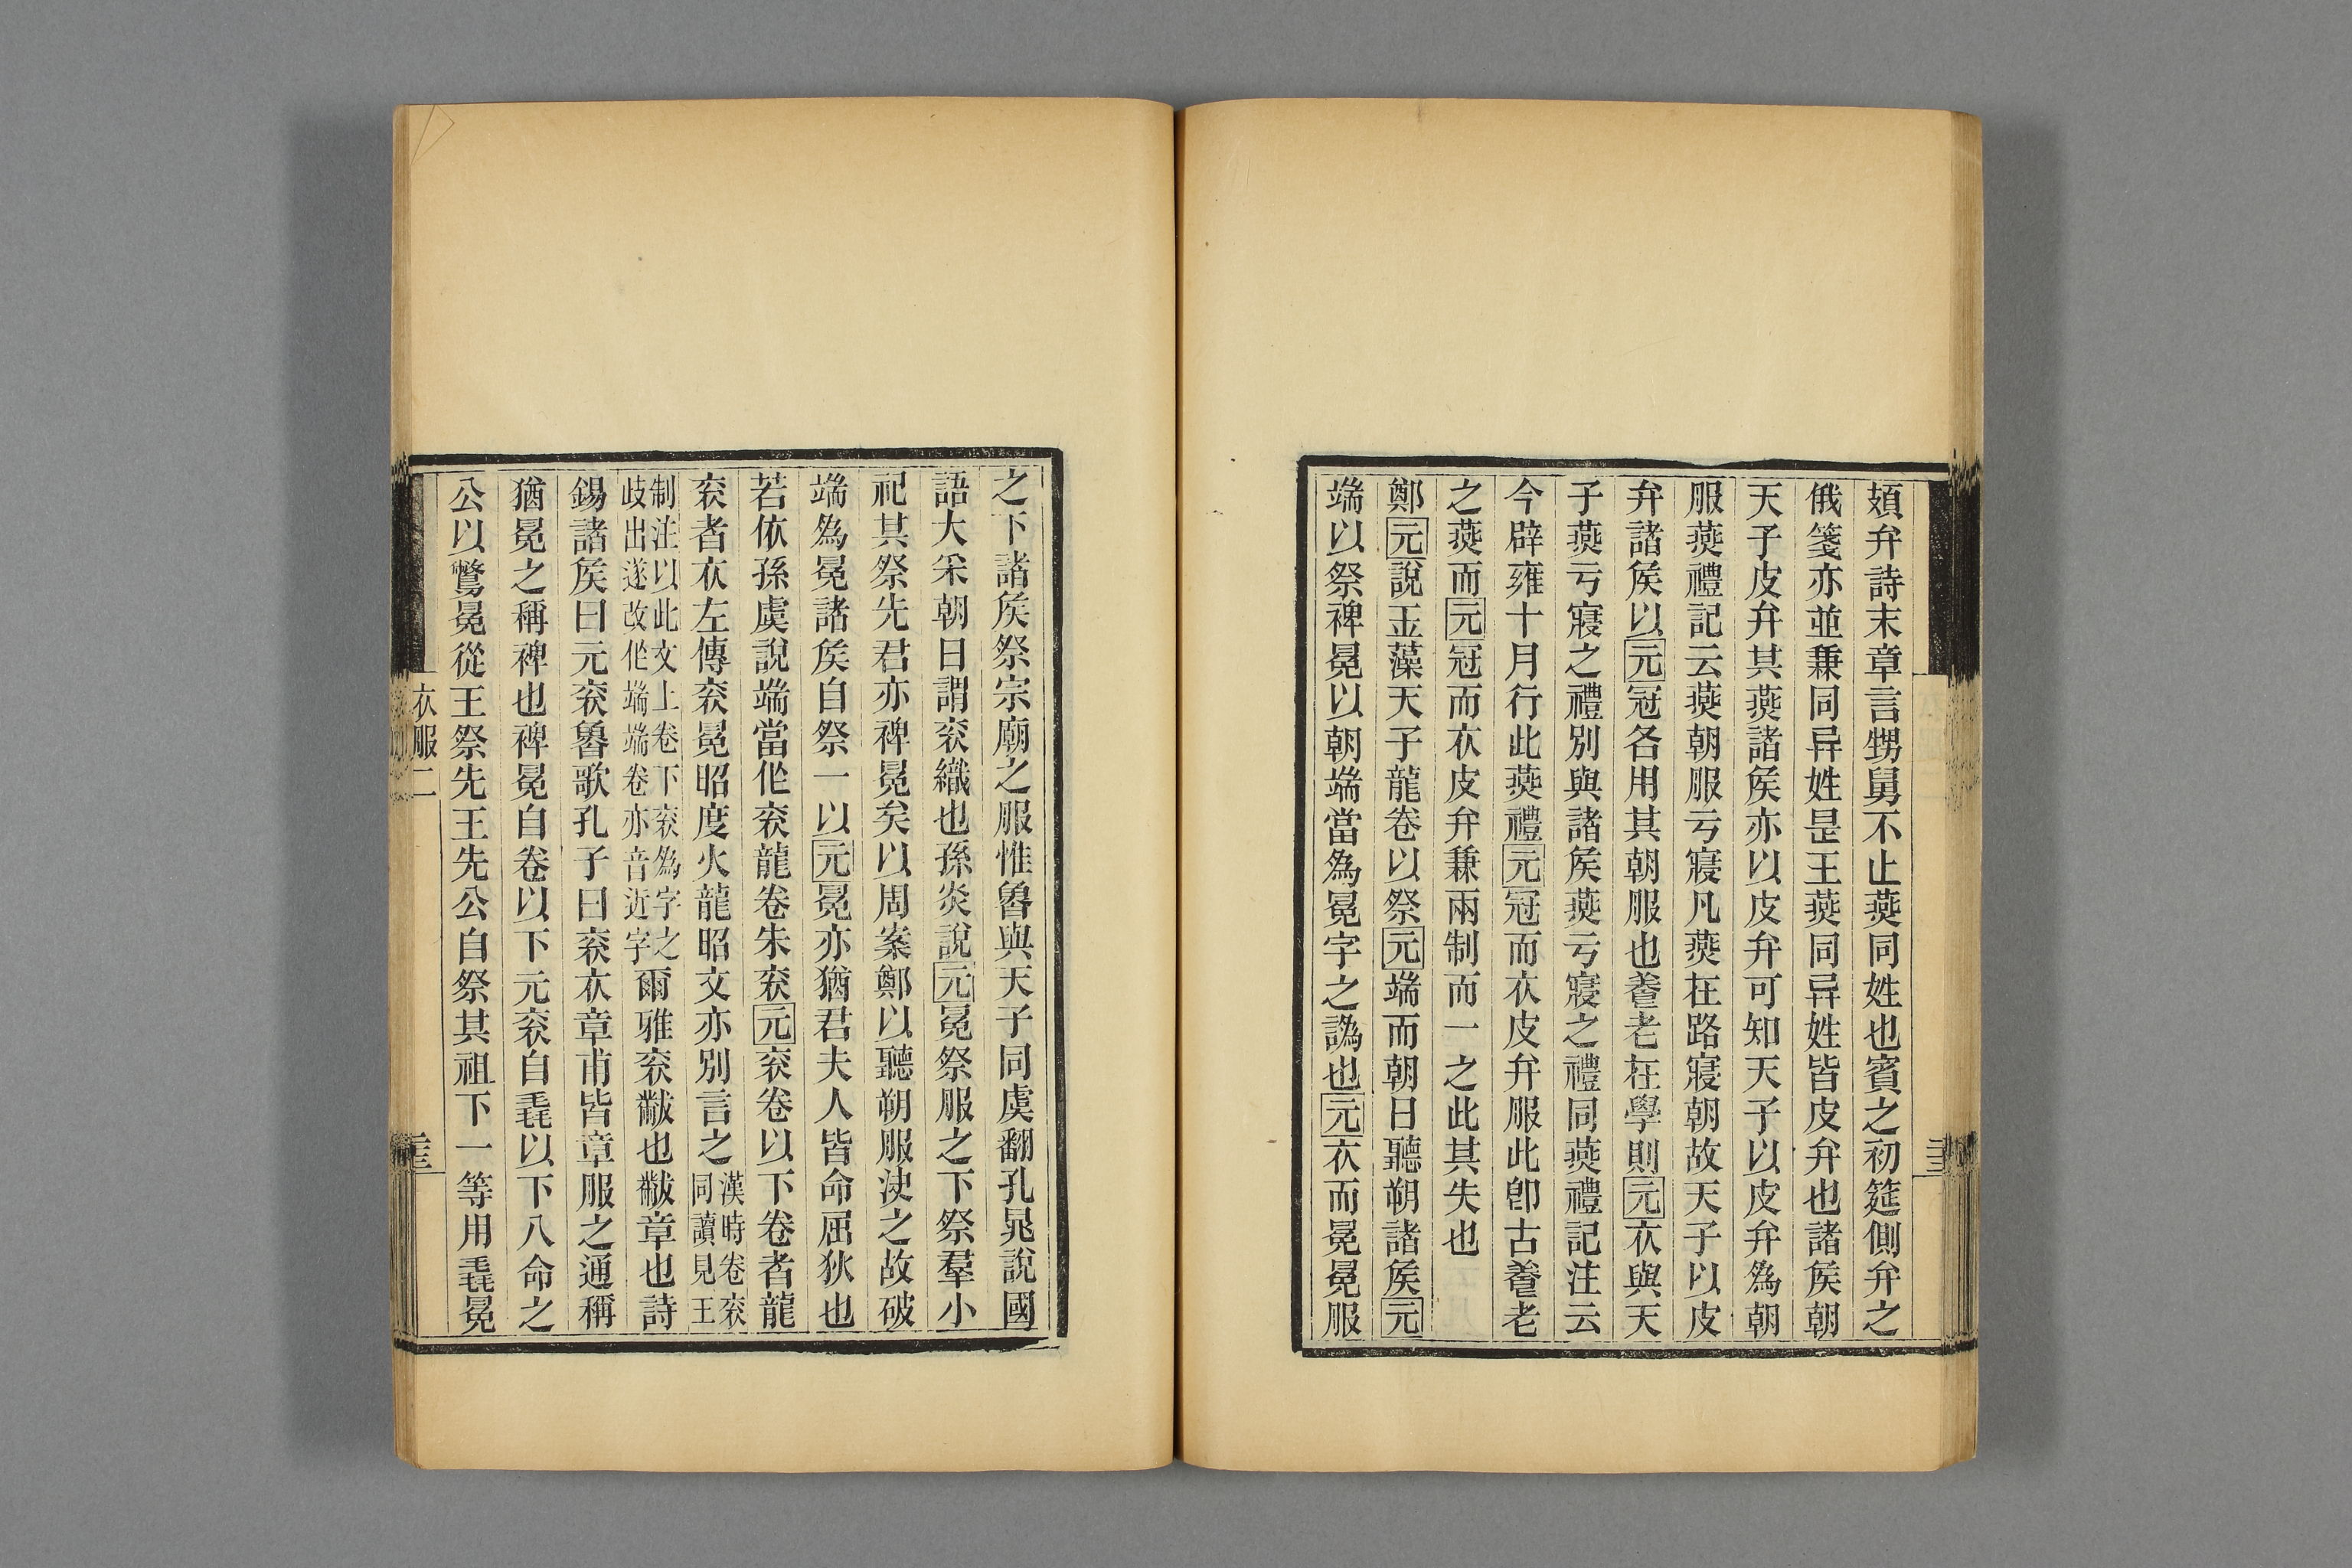 頍弁詩末章言甥舅不止燕同姓也賓之初筵側弁之
俄箋亦並兼同异姓是王燕同异姓皆皮弁也諸矦朝
天子皮弁其燕諸矦亦以皮弁可知天子以皮弁爲朝
服燕禮記云燕朝服亏寢凡燕在路寢朝故天子以皮
弁諸矦以元冠各用其朝服也養老在學則元衣與天
子燕亏寢之禮別與諸矦燕亏寢之禮同燕禮記注云
今辟雍十月行此燕禮元冠而衣皮弁服此卽古養老
之燕而元冠而衣皮弁兼兩制而一之此其失也
鄭元說玉藻天子龍卷以祭元端而朝日聽朔諸矦元
端以祭裨冕以朝端當爲冕字之譌也元衣而冕冕服
之下諸矦祭宗廟之服惟魯與天子同虞翻孔晁說國
語大采朝日謂袞織也孫炎說元冕祭服之下祭羣小
祀其祭先君亦裨冕矣以周案鄭以聽朔服決之故破
端爲冕諸矦自祭一以元冕亦猶君夫人皆命屈狄也
若依孫虞說端當作袞龍卷朱袞元袞卷以下卷者龍
袞者衣左傳袞冕昭度火龍昭文亦別言之漢時卷袞
同讀見王
制注以此文上卷下袞爲字之
歧出遂改作端端卷亦音近字爾雅袞黻也黻章也詩
錫諸矦曰元袞魯歌孔子曰袞衣章甫皆章服之通稱
猶冕之稱裨也裨冕自卷以下元袞自毳以下八命之
公以鷩冕從王祭先王先公自祭其祖下一等用毳冕
衣服二